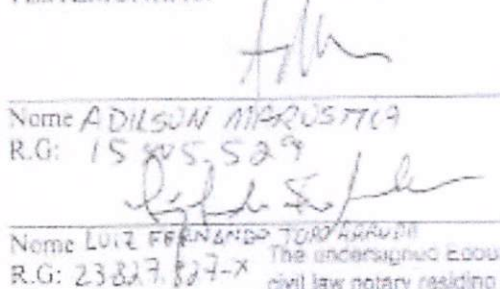 Nome ADILSON MARUSTICA
R.G: 15 805.529
Nome LUIZ FERNANDO
R.G: 23.827.827-X
The undersigned
civil law notary residing